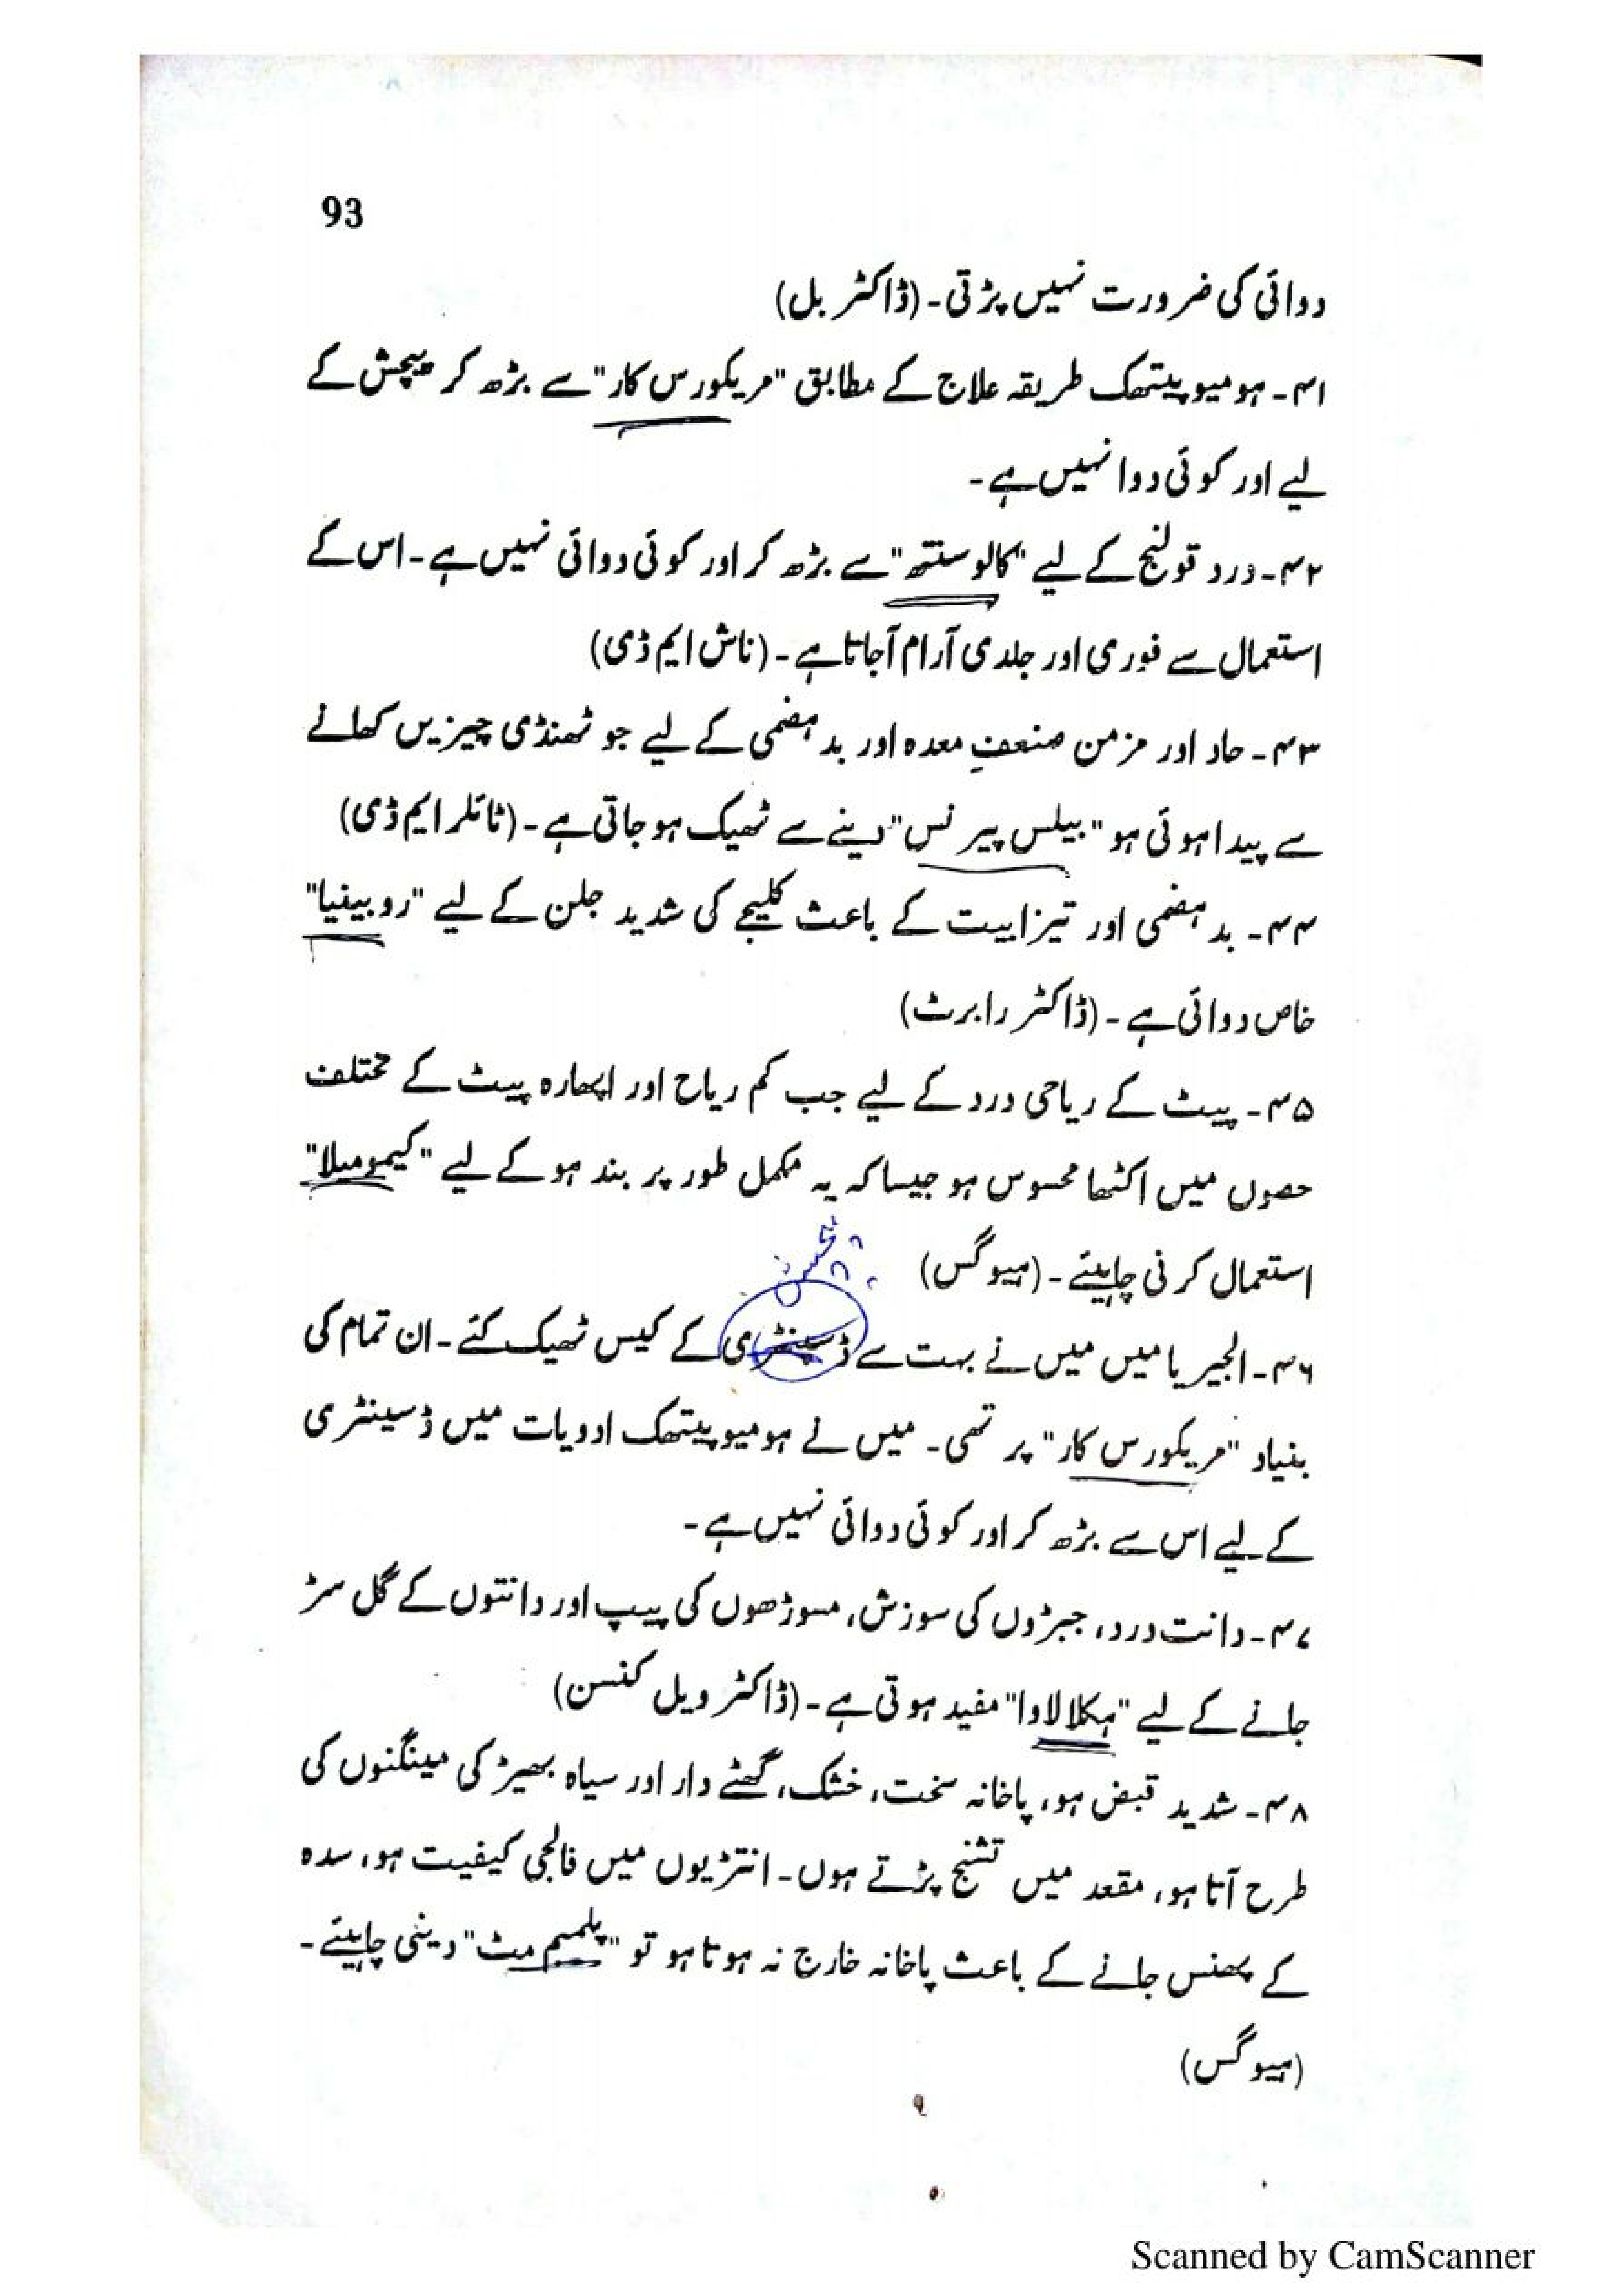 93
دوائی کی ضرورت نہیں پڑتی۔ (ڈاکٹر بل)
۴۱۔ ہومیوپیتھک طریقہ علاج کے مطابق "مریکورس کار" سے بڑھ کر پیچش کے
لیے اور کوئی دوا نہیں ہے۔
۴۲۔ درد قولنج کے لیے "کالوسنتھ" سے بڑھ کر اور کوئی دوائی نہیں ہے۔ اس کے
استعمال سے فوری اور جلدی آرام آجاتا ہے۔ (ناش ایم ڈی)
۴۳۔ حاد اور مزمن ضعفِ معدہ اور بدہضمی کے لیے جو ٹھنڈی چیزیں کھانے
سے پیدا ہوئی ہو "بیلس پیرنس" دینے سے ٹھیک ہو جاتی ہے۔ (ٹائلر ایم ڈی)
۴۴۔ بدہضمی اور تیزابیت کے باعث کلیجے کی شدید جلن کے لیے "روبینیا"
خاص دوائی ہے۔ (ڈاکٹر رابرٹ)
۴۵۔ پیٹ کے ریاحی درد کے لیے جب کم ریاح اور اپھارہ پیٹ کے مختلف
حصوں میں اکٹھا محسوس ہو جیسا کہ یہ مکمل طور پر بند ہو کے لیے "کیمومیلا"
استعمال کرنی چاہیئے۔ (ہیوگس)
۴۶۔ الجیریا میں میں نے بہت سے ڈسینٹری کے کیس ٹھیک کئے۔ ان تمام کی
بنیاد "مریکورس کار" پر تھی۔ میں نے ہومیوپیتھک ادویات میں ڈسینٹری
کے لیے اس سے بڑھ کر اور کوئی دوائی نہیں ہے۔
۴۷۔ دانت درد، جبڑوں کی سوزش، مسوڑھوں کی پیپ اور دانتوں کے گل سڑ
جانے کے لیے "ہکلا لاوا" مفید ہوتی ہے۔ (ڈاکٹر ویل کنسن)
۴۸۔ شدید قبض ہو، پاخانہ سخت، خشک، گھٹے دار اور سیاہ بھیڑ کی مینگنوں کی
طرح آتا ہو، مقعد میں تشنج پڑتے ہوں۔ انتڑیوں میں فالجی کیفیت ہو، سدہ
کے پھنس جانے کے باعث پاخانہ خارج نہ ہوتا ہو تو "پلمبم مٹ" دینی چاہیئے۔
(ہیوگس)
Scanned by CamScanner